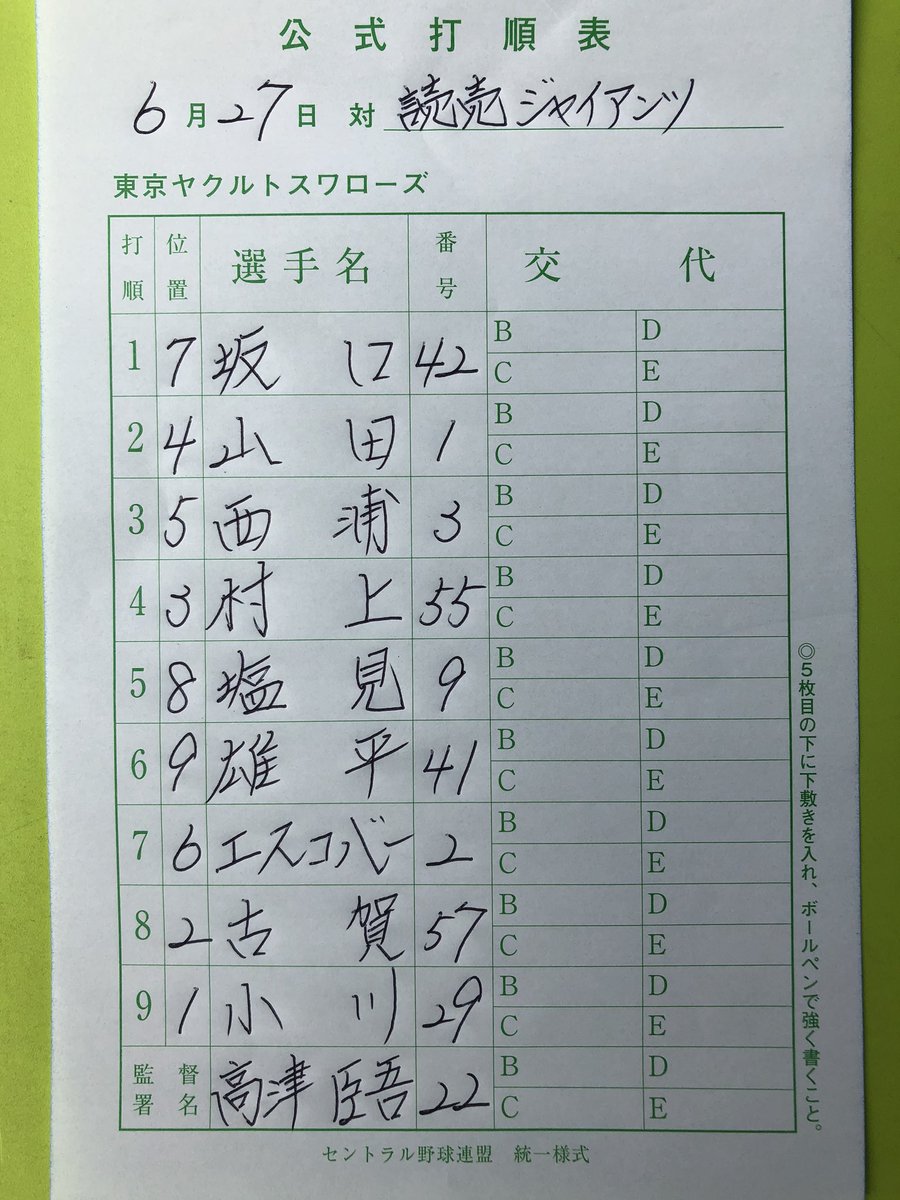 公式打順表
6月27日 対 読売ジャイアンツ
東京ヤクルトスワローズ
打順 位置 選手名 番号 交代
1 7 坂口 42 B D C E
2 4 山田 1 B D C E
3 5 西浦 3 B D C E
4 3 村上 55 B D C E
5 8 塩見 9 B D C E
6 9 雄平 41 B D C E
7 6 エスコバー 2 B D C E
8 2 古賀 57 B D C E
9 1 小川 29 B D C E
監督署名 高津臣吾 22 B D C E
◎5枚目の下に下敷きを入れ、ボールペンで強く書くこと。
セントラル野球連盟 統一様式